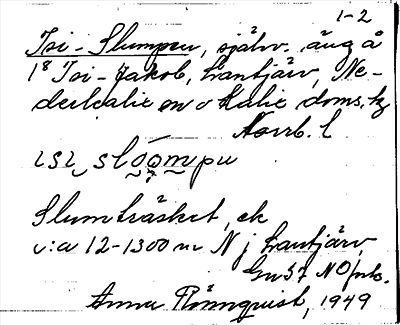 1-2
Isi-Slumpen, självv. äng å
1⁸ Isi-Jakob, Lantjärv, Ne-
derkalix o kalix doms.
Norrb. l
ısı sloompu
Slumträsket, ek
c:a 12-1300 m N j Lantjärv,
NO
Anna Rönnquist, 1949